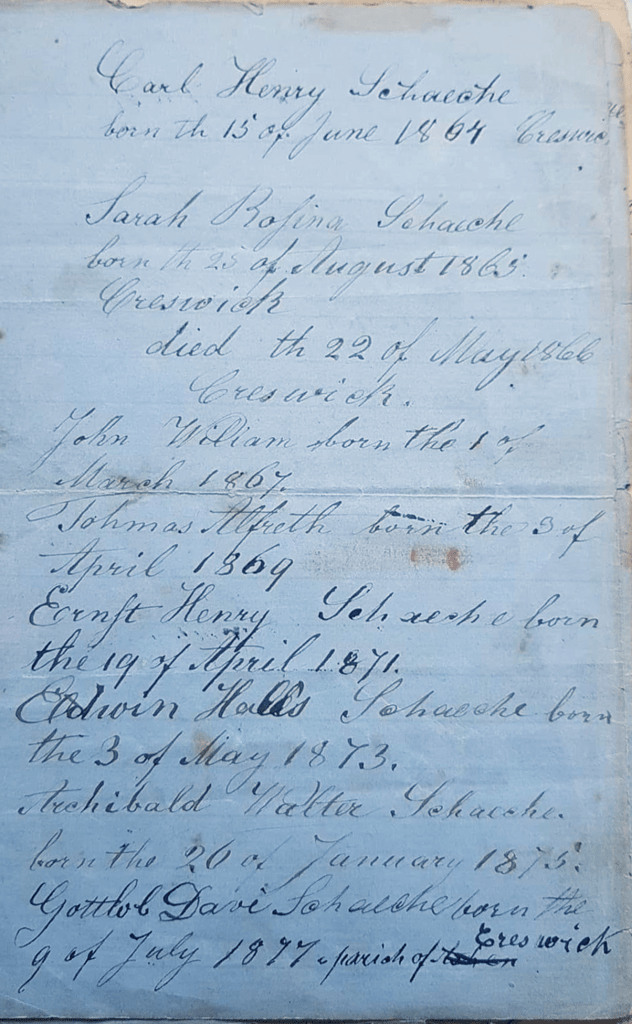 Carl Henry Schaeche
born th 15 of June 1864 Creswick
Sarah Rosina Schaeche
born th 25 of August 1865.
Creswick
died th 22 of May 1866
Creswick.
John William born the 1 of
March 1867.
Tohmas Alfreth born the 3 of
April 1869
Ernst Henry Schaeche born
the 19 of April 1871.
Edwin Schaeche born
the 3 of May 1873.
Archibald Walter Schaeche.
born the 26 of January 1875.
Gottlob Davi Schaeche born the
9 of July 1877. parich of Creswick